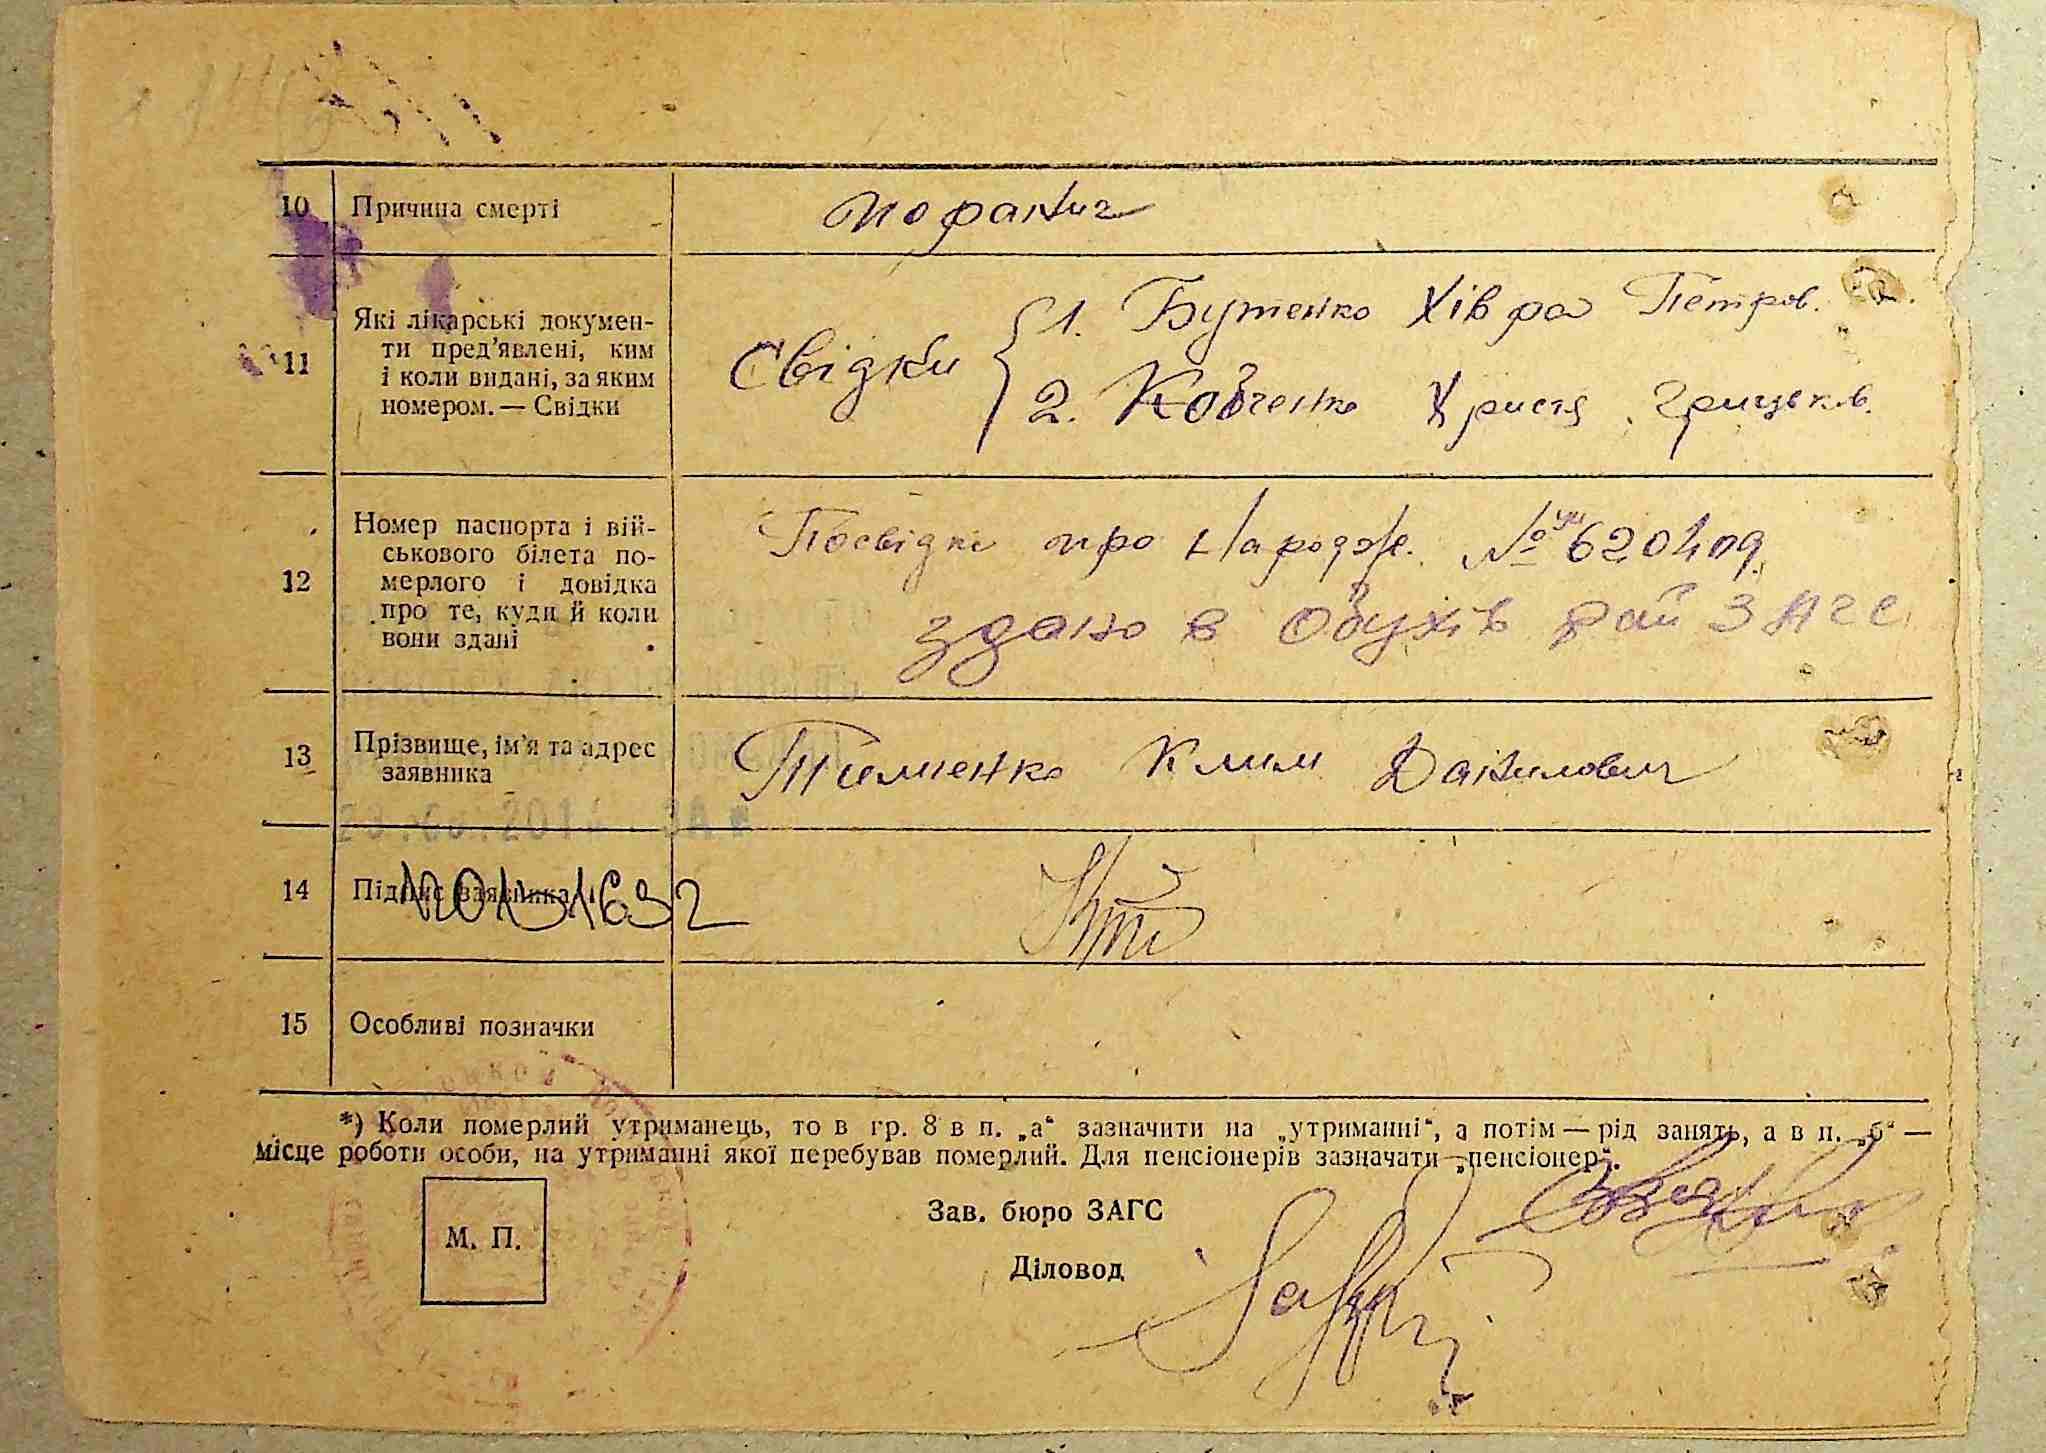 10 Причина смерті
11 Які лікарські докумен-
ти пред’явлені, ким
і коли видані, за яким
номером. — Свідки
Свідки { 1. Бутенко Хівря Петров.
2. Ковченко Христя Грицьків.
12 Номер паспорта і вій-
ськового білета по-
мерлого і довідка
про те, куди й коли
вони здані
Посвідкі про Народж. №
здано в Обухів рай ЗАГС
13 Прізвище, ім’я та адрес
заявника
Тименко Клим Данилович
14 Підпис заявника
15 Особливі позначки
*) Коли померлий утриманець, то в гр. 8 в п. „а“ зазначити на „утриманні“, а потім — рід занять, а в п. „б“ —
місце роботи особи, на утриманні якої перебував померлий. Для пенсіонерів зазначати „пенсіонер“.
М. П.
Зав. бюро ЗАГС
Діловод